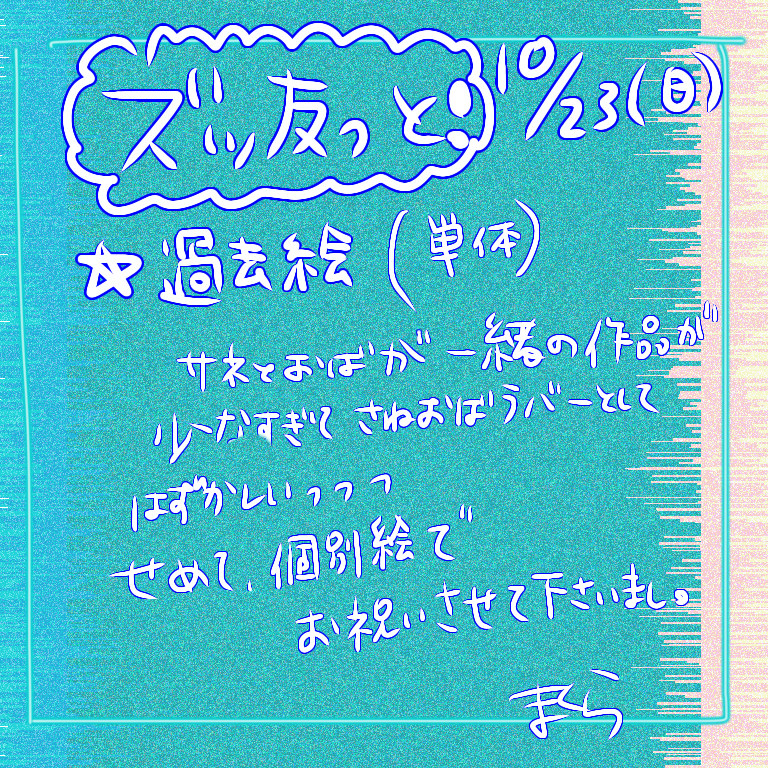 ズッ友っと! 10/23(日)
☆過去絵(単体)
サネとおばが一緒の作品が
少なすぎて さねおばラバーとして
はずかしいっっっ
せめて、個別絵で
お祝いさせて下さいまし。
まら